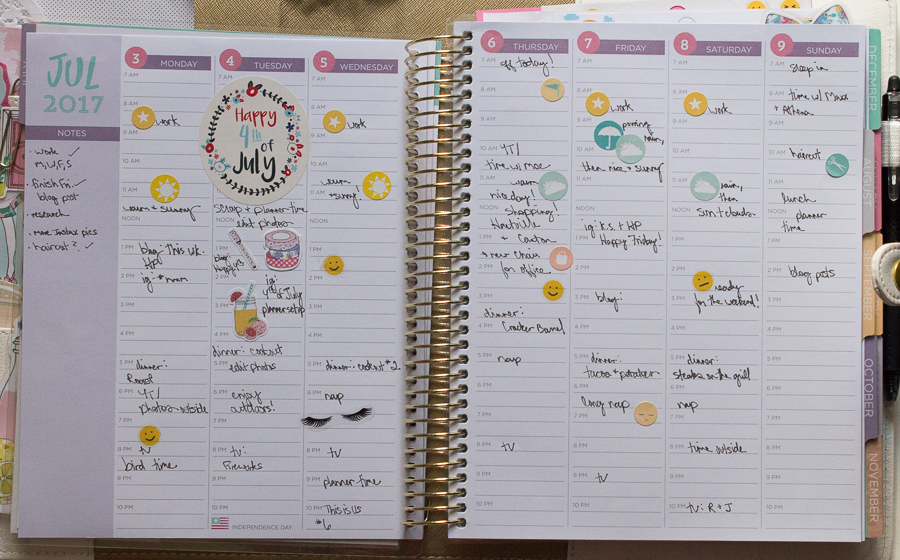 JUL
2017
NOTES
work ✓
M, W, F, S
finish Fri. ✓
blog post
research
more Instax pics
haircut? ✓
3 MONDAY
7 AM
8 AM
work
9 AM
10 AM
11 AM
warm + sunny
NOON
1 PM
blog: This wk.
HP
2 PM
ig: + mom
3 PM
4 PM
5 PM
dinner:
Roast
6 PM
YT/
photos outside
7 PM
8 PM
tv
bird time
9 PM
10 PM
4 TUESDAY
7 AM
Happy
4th
of
July
scrap + planner time
NOON
edit photos
1 PM
blog:
2 PM
ig:
4th of July
planner setup
3 PM
4 PM
dinner: cookout
5 PM
edit photos
6 PM
enjoy
outdoors!
7 PM
8 PM
tv:
Fireworks
9 PM
10 PM
INDEPENDENCE DAY
5 WEDNESDAY
7 AM
8 AM
work
9 AM
10 AM
11 AM
warm
+ sunny!
NOON
1 PM
2 PM
3 PM
4 PM
5 PM
dinner: cookout #2
6 PM
nap
7 PM
8 PM
tv
9 PM
planner time
10 PM
This is Us
#6
6 THURSDAY
7 AM
off today!
8 AM
9 AM
10 AM
YT/
time w/ Mae
11 AM
warm
nice day!
NOON
shopping!
Knoxville
1 PM
+ Canton
+ new chair
2 PM
for office
3 PM
dinner:
4 PM
Cracker Barrel
5 PM
nap
6 PM
7 PM
8 PM
tv
9 PM
10 PM
7 FRIDAY
7 AM
8 AM
work
9 AM
pouring
rain,
10 AM
then nice + sunny
11 AM
NOON
ig: K.S. + HP
1 PM
Happy Friday!
2 PM
3 PM
blog:
4 PM
5 PM
dinner:
tacos + potatoes
6 PM
7 PM
long nap
8 PM
9 PM
tv
10 PM
8 SATURDAY
7 AM
8 AM
work
9 AM
10 AM
11 AM
rain,
then
NOON
sun + clouds
1 PM
2 PM
ready
3 PM
for the weekend!
4 PM
5 PM
dinner:
steaks on the grill
6 PM
nap
7 PM
8 PM
time outside
9 PM
10 PM
tv: R + J
9 SUNDAY
7 AM
sleep in
8 AM
time w/ Maws
+ Athena
9 AM
10 AM
haircut
11 AM
lunch
NOON
planner
time
1 PM
2 PM
blog posts
3 PM
4 PM
5 PM
6 PM
7 PM
8 PM
9 PM
10 PM
DECEMBER
AUGUST
OCTOBER
NOVEMBER